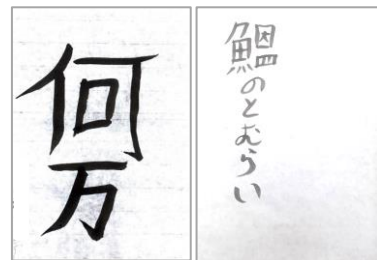 何万
鰮のとむらい